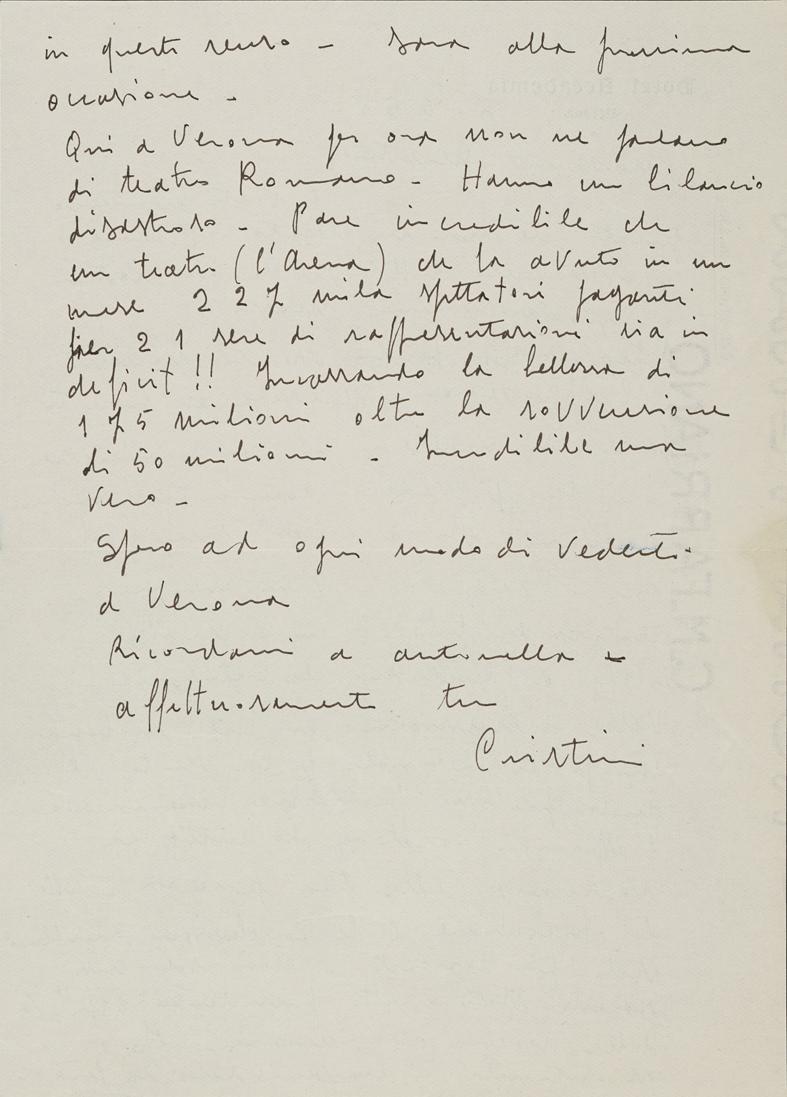 in questo senso - Sarà alla prossima
occasione -
Qui a Verona per ora non ne parlano
di teatro Romano - Hanno un bilancio
disastroso - Pare incredibile che
un teatro (l'Arena) che ha avuto in un
mese 227 mila spettatori paganti
per 21 sere di rappresentazioni sia in
deficit!! Incassando la bellezza di
175 milioni oltre la sovvenzione
di 50 milioni - Incredibile ma
vero -
Spero ad ogni modo di vederti
a Verona
Ricordami a Antonella -
affettuosamente tuo
Cristini